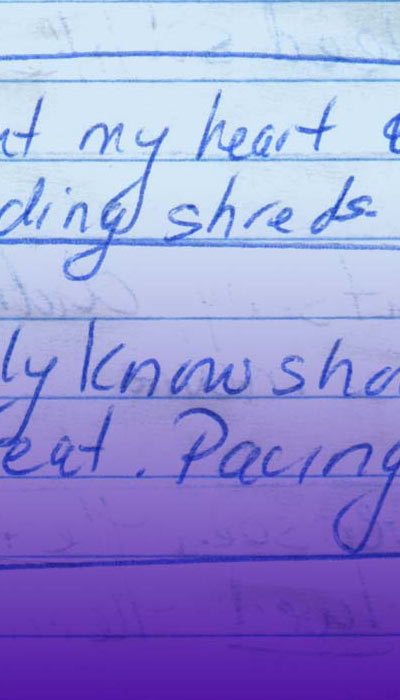 my heart
ding shreds.
ly know sho
eat. Pacing